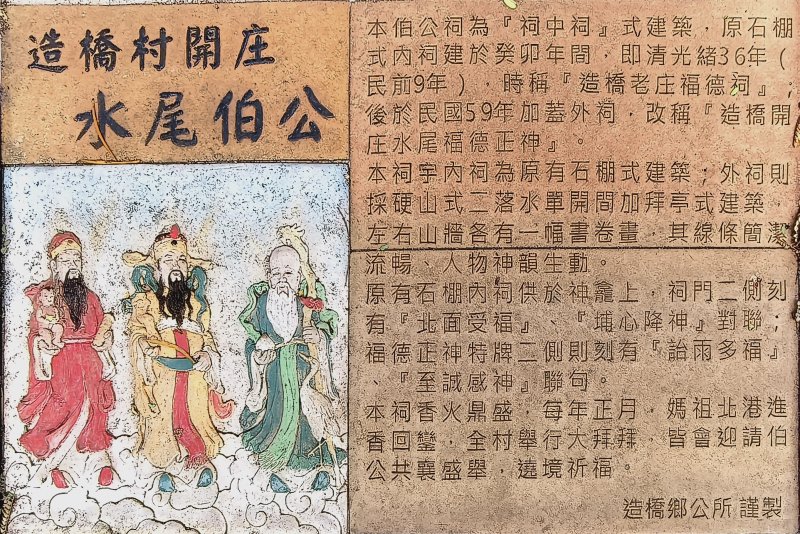 造橋村開庄
水尾伯公
本伯公祠為『祠中祠』式建築，原石棚
式內祠建於癸卯年間，即清光緒36年（
民前9年），時稱『造橋老庄福德祠』；
後於民國59年加蓋外祠，改稱『造橋開
庄水尾福德正神』。
本祠宇內祠為原有石棚式建築；外祠則
採硬山式二落水單開間加拜亭式建築，
左右山牆各有一幅書卷畫，其線條簡潔
流暢、人物神韻生動。
原有石棚內祠供於神龕上，祠門二側刻
有『北面受福』、『埔心降神』對聯；
福德正神特牌二側則刻有『詒雨多福』
、『至誠感神』聯句。
本祠香火鼎盛，每年正月，媽祖北港進
香回鑾，全村舉行大拜拜，皆會迎請伯
公共襄盛舉，遶境祈福。
造橋鄉公所 謹製